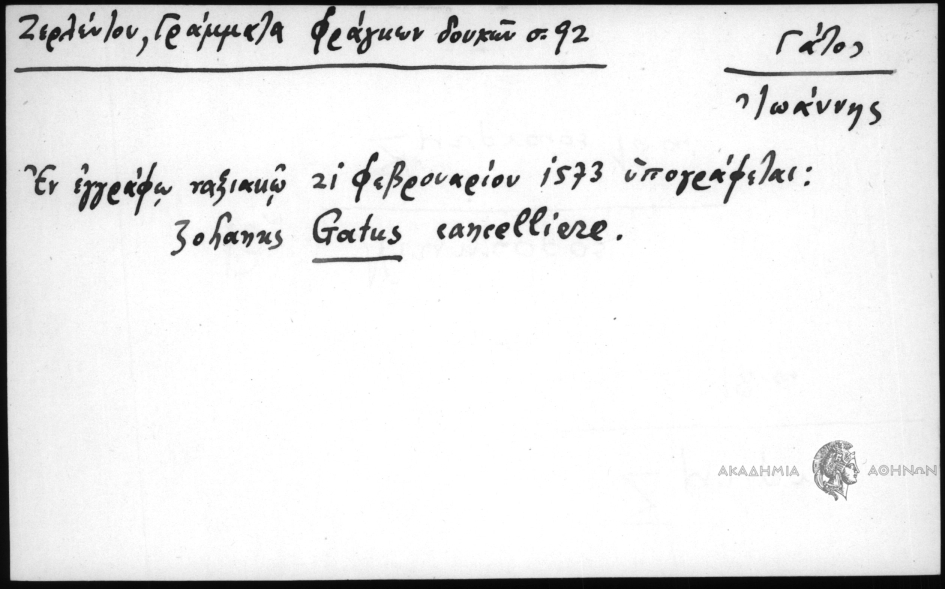 Ζερλέντου, Γράμματα φράγκων δουκῶν σ. 92
Γάτος
Ἰωάννης
Ἐν ἐγγράφῳ ναξιακῷ 21 φεβρουαρίου 1573 ὑπογράφεται:
Zohanus Gatus cancelliere.
ΑΚΑΔΗΜΙΑ ΑΘΗΝΩΝ